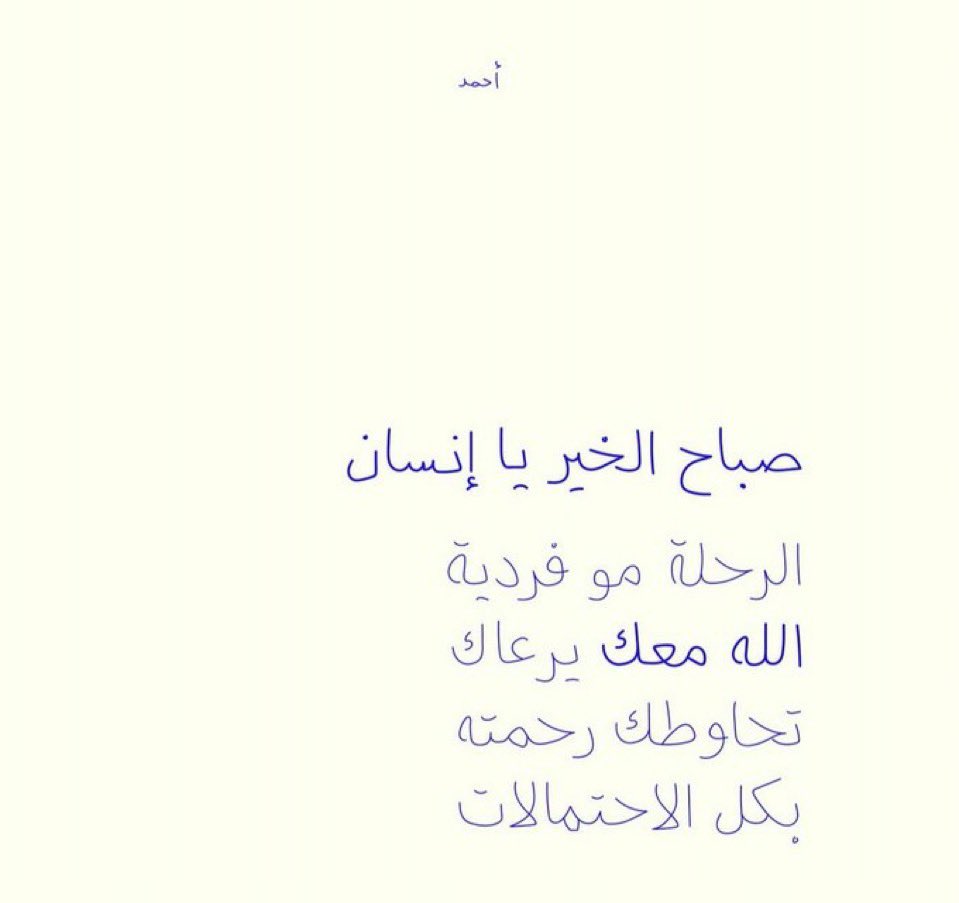 أحمد
صباح الخير يا إنسان
الرحلة مو فردية
الله معك يرعاك
تحاوطك رحمته
بكل الاحتمالات